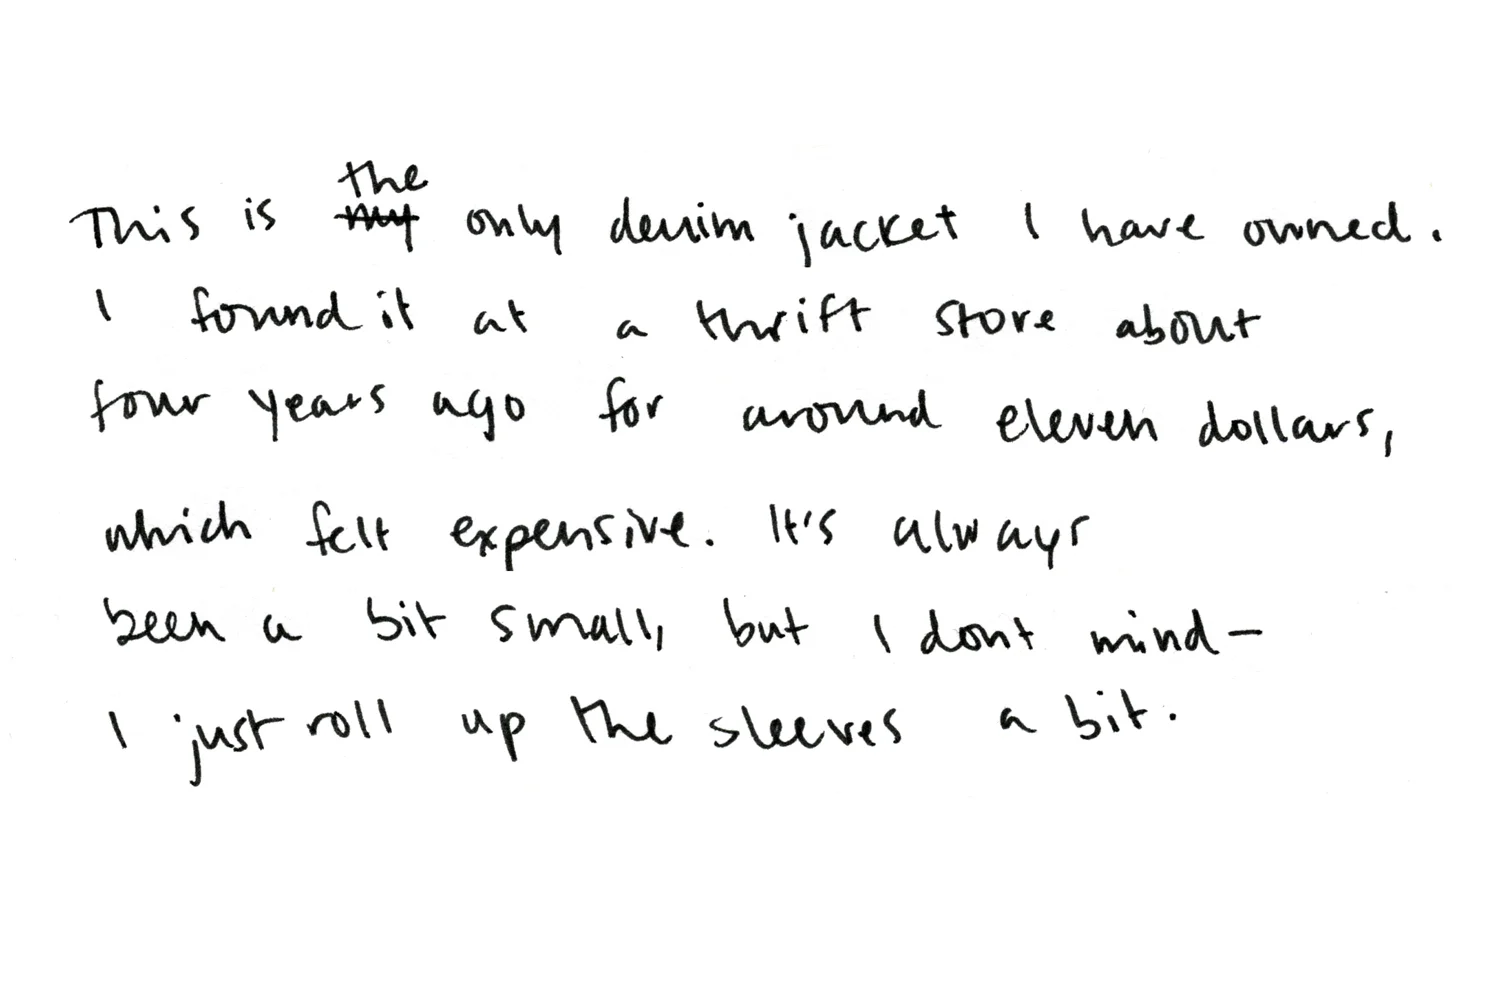 This is the only denim jacket I have owned.
I found it at a thrift store about
four years ago for around eleven dollars,
which felt expensive. It's always
been a bit small, but I dont mind—
I just roll up the sleeves a bit.